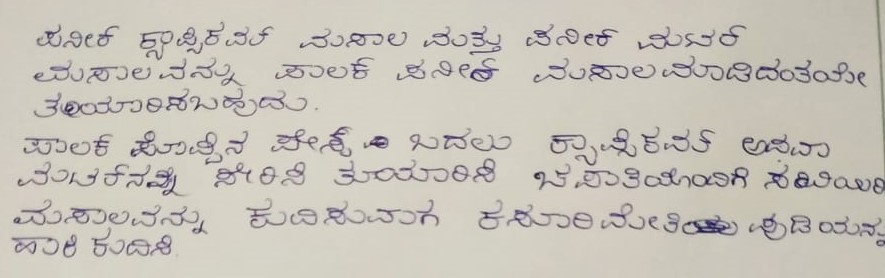 ಪನೀರ್ ಕ್ಯಾಪ್ಸಿಕಮ್ ಮಸಾಲ ಮತ್ತು ಪನೀರ್ ಮಟರ್
ಮಸಾಲವನ್ನು ಪಾಲಕ್ ಪನೀರ್ ಮಸಾಲಮಾಡಿದಂತಯೇ
ತಯಾರಿಸಬಹುದು.
ಪಾಲಕ್ ಸೊಪ್ಪಿನ ಪೇಸ್ಟ್ ಬದಲು ಕ್ಯಾಪ್ಸಿಕಮ್ ಅಥವಾ
ಮಟರ್‌ನನ್ನು ಸೇರಿಸಿ ತಯಾರಿಸಿ ಚಪಾತಿಯೊಂದಿಗೆ ಸವಿಯಿರಿ
ಮಸಾಲವನ್ನು ಕುದಿಸುವಾಗ ಕಸೂರಿಮೇತಿಯ ಪುಡಿಯನ್ನು
ಹಾಕಿ ಕುದಿಸಿ